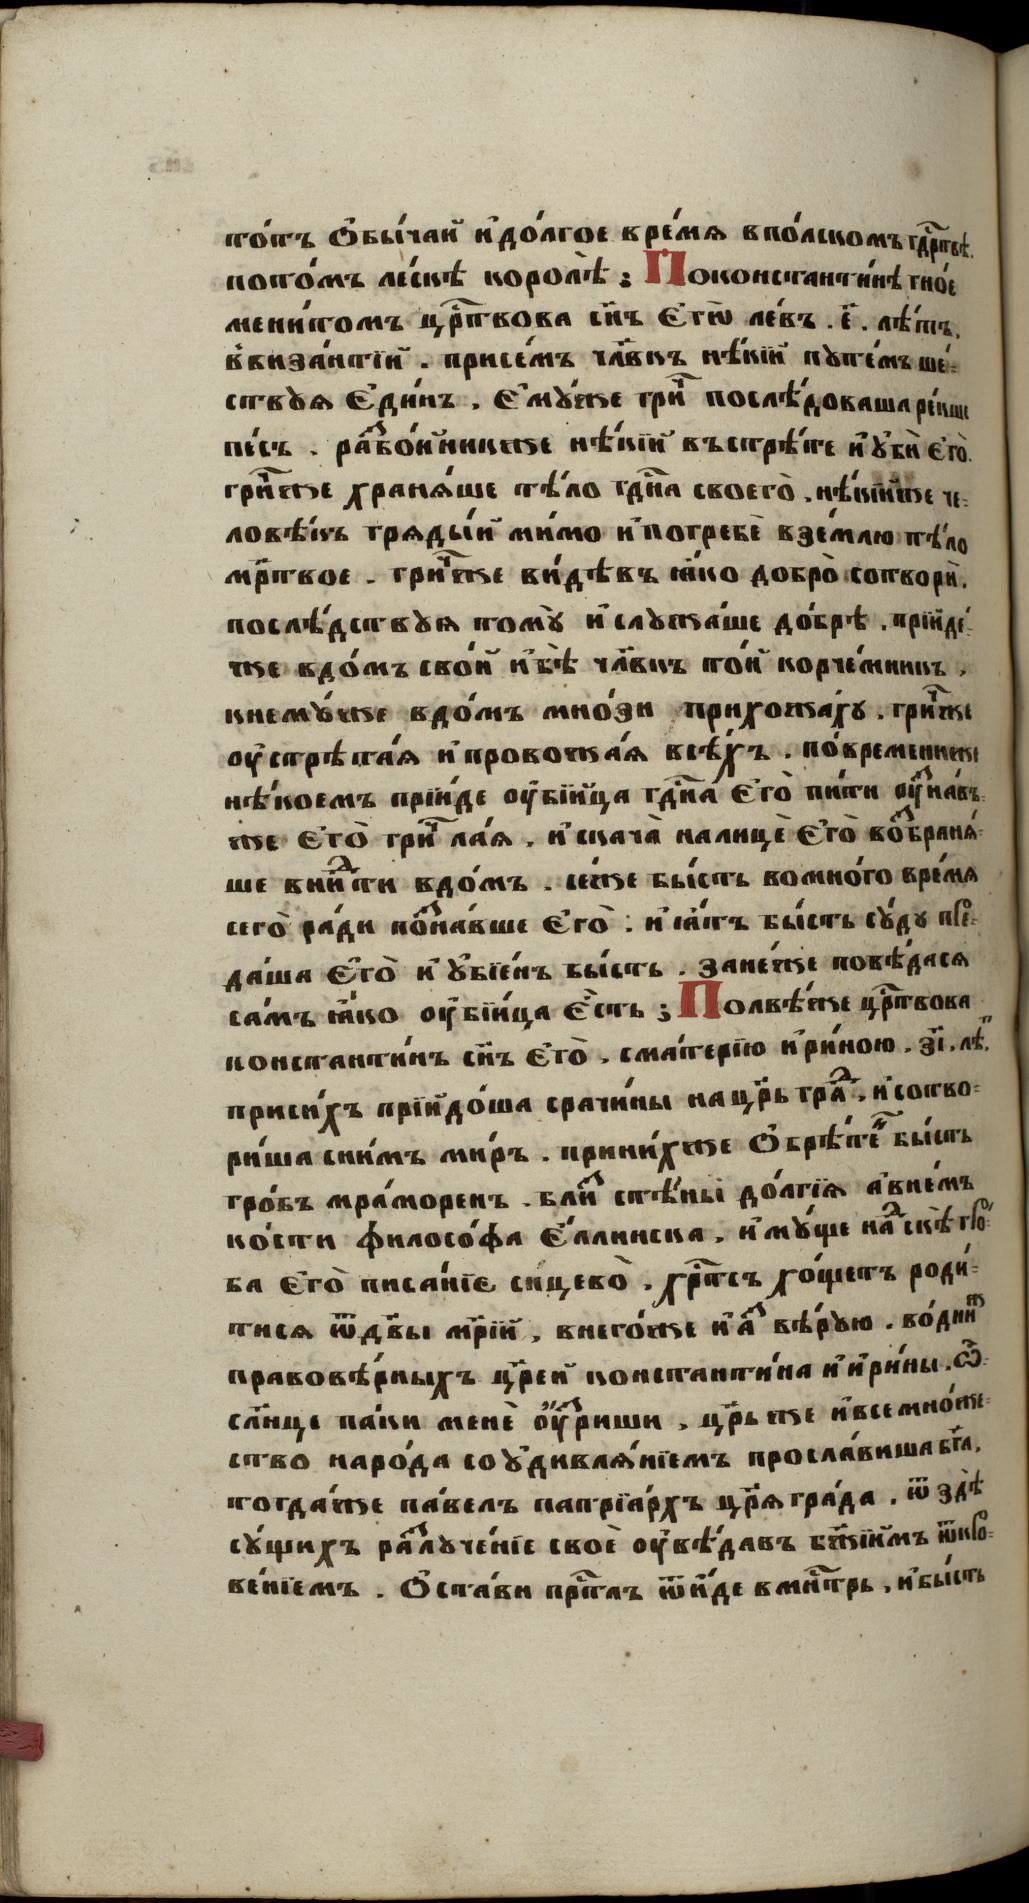 то́тъ Ѻ҆бы́чай и҆до́лгое вре́мѧ впо́лскомъ гдⷭ҇ртвѣ.
пото́мъ ле́скѣ королѣ̀ ; Поконстанти́нѣ гно́е
мени́томъ црⷭ҇твова сн҃ъ Є҆гѡ̀ ле́въ . є҃ . лѣ́тъ,
в̾византі́й . присе́мъ чл҃вкъ нѣ́кїй путе́мъ ше́-
ствꙋѧ Є҆ди́нъ , Є҆мꙋ́же гри́ⷭ послѣ́доваша ре́кше
пе́съ . раⷥбо́йникже нѣ́кїй въстрѣ́те и҆ ꙋ҆бѝ є҆го̀.
гри́ⷭже хранѧ́ше тѣ́ло гдⷭ҇на своего̀ , нѣ́кїйже че-
ловѣ́къ грѧды́й ми́мо и҆погребѐ взе́млю тѣ́ло
мр҃твое . гри́ⷭже ви́дѣвъ ꙗ҆́ко добро̀ сотворѝ,
послѣ́дствꙋѧ томꙋ̀ и҆слꙋжа́ше до́брѣ , прїйде́-
же вдо́мъ сво́й и҆бѣ̀ чл҃вкъ то́й корче́мникъ ,
кнемꙋ́же вдо́мъ мно́зи прихожа́хꙋ . гри́ⷭже
оу҆стрѣта́ѧ и҆провожа́ѧ всѣ́хъ . по́временииже
нѣ́коемъ прїи́де оу҆бі́йца гдⷭ҇на Є҆го̀ пи́ти оу҆ⷥна́въ-
же Є҆го̀ гри́ⷭ ла́ѧ , и҆скача̀ налицѐ Є҆го̀ воⷥбранѧ́-
ше вни́ⷣти вдо́мъ . се́же бы́сть вомно́го вре́мѧ
сего̀ ра́ди поⷥна́вше Є҆го̀ : и҆ ꙗ҆́тъ бы́сть сꙋ́дꙋ пре-
да́ша Є҆го̀ и҆ ꙋ҆бїе́нъ бы́сть . зане́же повѣ́дасѧ
са́мъ ꙗ҆́ко оу҆бі́йца Є҆́сть ; Полвѣ́же црⷭ҇твова
константи́нъ сн҃ъ Є҆го̀ , сма́терїю и҆ри́ною , з҃і , лѣ́ⷮ,
приси́хъ прїйдо́ша срачи́ны на цр҃ь гра́ⷣ , и҆сотво-
ри́ша сни́мъ ми́ръ . прини́хже Ѻ҆брѣ́теⷩ бы́сть
гро́бъ мра́моренъ . бли́ⷥ стѣ́ны до́лгїѧ а҆вне́мъ
ко́сти филосо́фа Є҆́ллинска , и҆мꙋ́ще наⷣскѣ гро́-
ба Є҆го̀ писа́нїе сицево̀ , хрⷭ҇тсъ хо́щетъ роди́-
тисѧ ѿдв҃ы мр҃і́й , внего́же и҆а҆ⷥ вѣ́рꙋю . во́днииⷤ
правовѣ́рныхъ цр҃ей константи́на и҆и҆ри́ны . ѽ-
сл҃нце па́ки менѐ оу҆́ⷥриши , цр҃ь же и҆всемно́же-
ство наро́да со ꙋ҆дивлѧ́нїемъ просла́виша бг҃а,
тогда́же па́велъ патрїа́рхъ цр҃ѧ гра́да , ѿ здѣ̀
сꙋ́щихъ раⷥлꙋче́нїе своѐ оу҆вѣ́давъ бж҃їи́мъ ѿкро-
ве́нїемъ . Ѻ҆ста́ви прⷭ҇тлъ ѿи҆́де вмнⷭ҇трь , и҆бы́сть